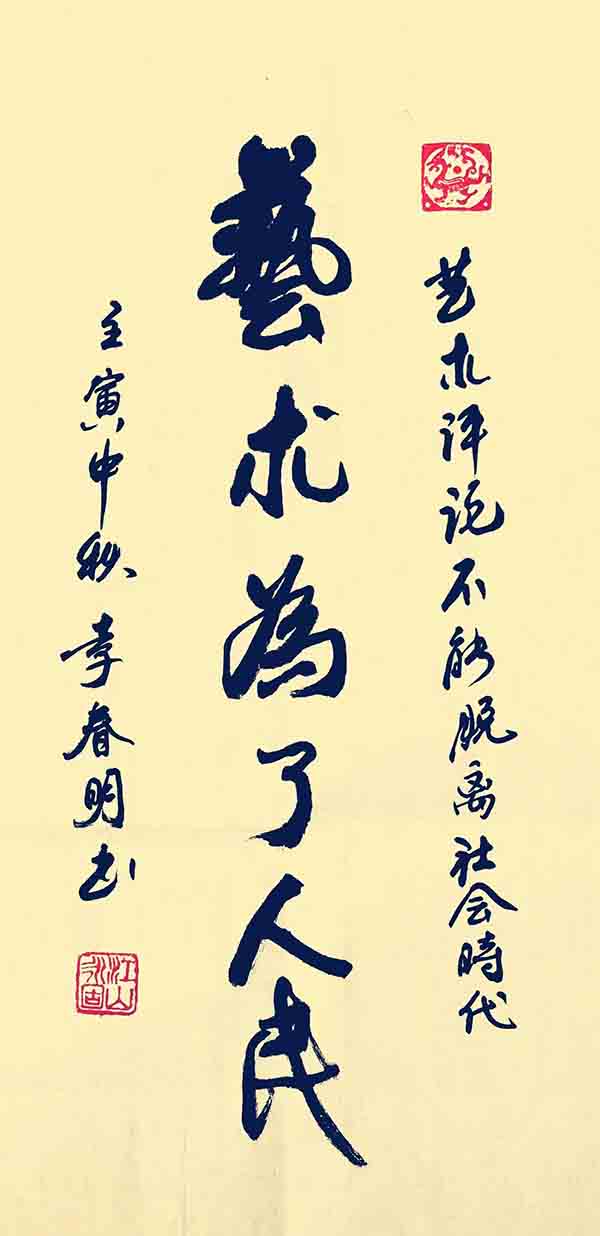 艺术评说不能脱离社会時代
藝术為了人民
壬寅中秋 李春明书
江山永固